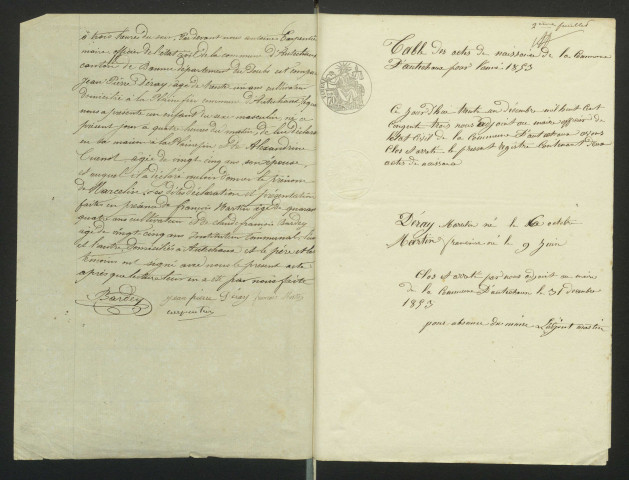 à trois heures du soir, Pardevant nous antoine Carpentier
maire officier de l'état civil de la commune d'Autechaux
canton de Baume département du Doubs est comparu
jean Pierre Déray agé de trente un ans cultivateur
domicilié à la commune d'Autechaux lequel
nous a présenté un enfant du sexe masculin né ce
présent jour à quatre heures du matin de lui déclarant
en sa maison à la et de Alexandrine
agée de vingt cinq ans son épouse,
et auquel il a déclaré vouloir donner le prénom
de Marcelin, ces dites déclaration et présentation
faite en présence de françois Martin agé de quarante
quatre ans cultivateur et de claude françois Bardey
agé de vingt cinq ans Instituteur communal, l'un
et l'autre domiciliés à Autechaux et le père et les
témoins ont signé avec nous le présent acte
après que lecture en a été par nous faite
Bardey jean pierre Déray
carpentier
2ème feuillet
Table des actes de naissance de la Commune
D'autechaux pour l'année 1853
Ce jourd'hui trente un décembre mil huit cent
cinquante trois nous adjoint au maire officier de
l'état civil de la Commune d'autechaux avons
Clos et arrêté le présent registre contenant deux
actes de naissance
Déray Marcelin né le 6 octobre
Martin françoise née le 9 Juin
Clos et arrêté par nous adjoint au maire
de la Commune D'autechaux le 31 décembre
1853
pour absence du maire L'adjoint martin